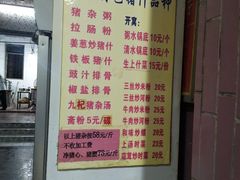 猪杂粥
拉肠粉
姜葱炒猪什
铁板猪什
豉汁排骨
椒盐排骨
九杞猪杂汤
斋粉5元/碟
以上猪杂按58元/斤
不收加工费
净猪心、猪腰75元/斤
开窝:
粥水锅底10元/个
清水锅底10元/个
生上什菜15元/份
三丝炒米粉 20元
三丝炒河粉 20元
牛肉炒米粉 25元
牛肉炒河粉 25元
和味炒螺 20元
上汤时菜 20元
炒时菜 20元